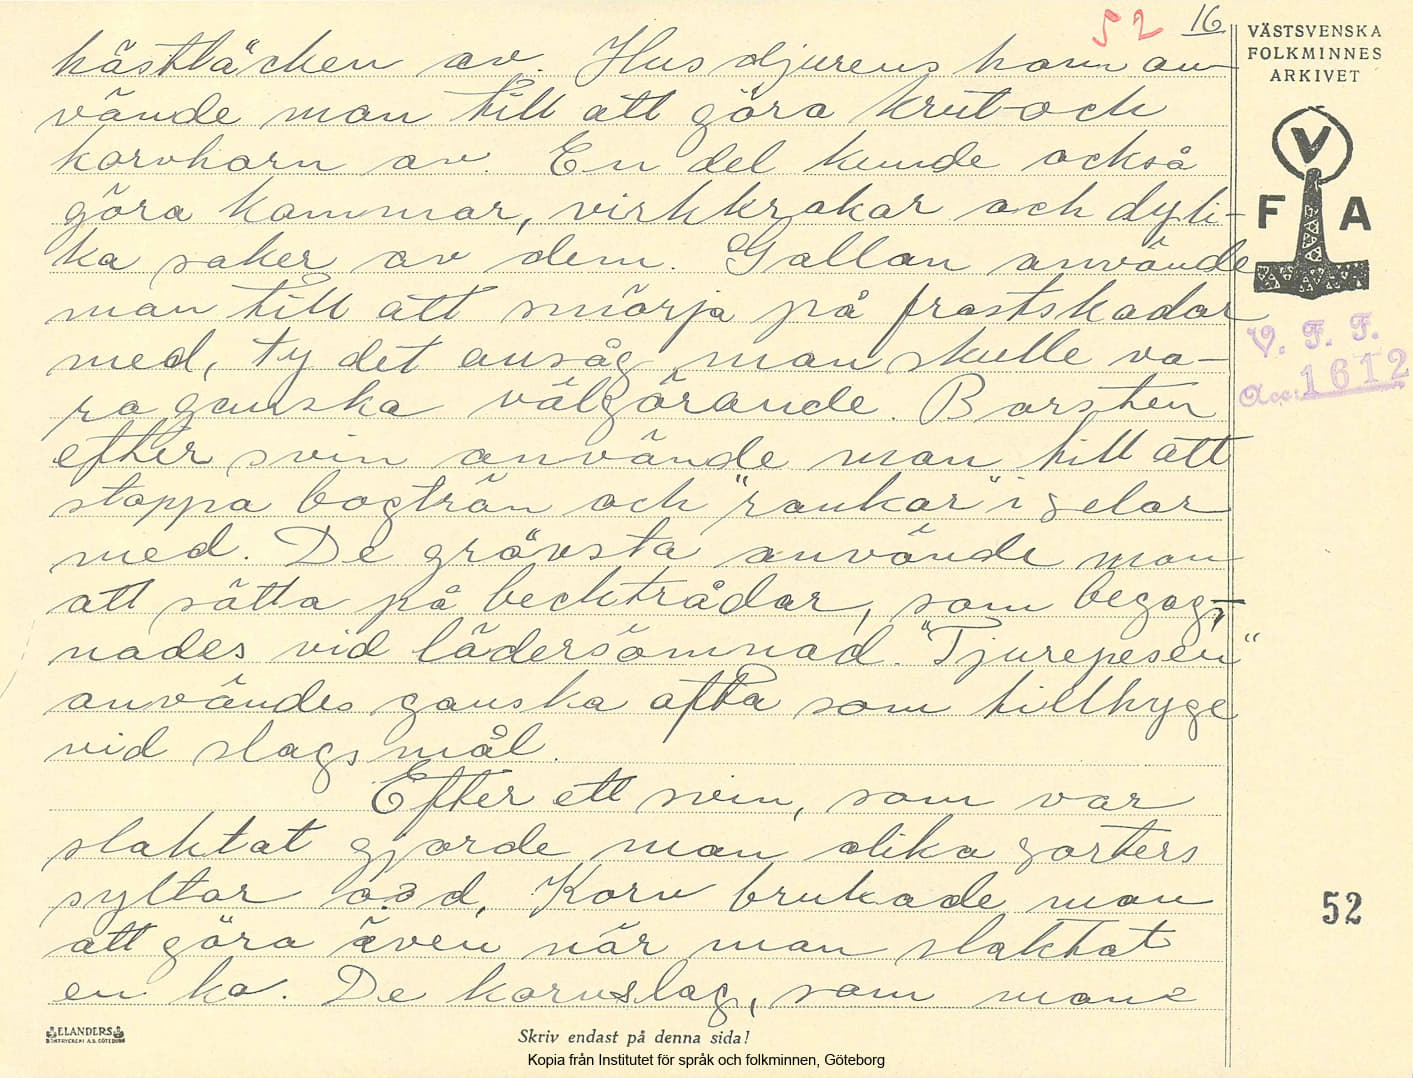 52 16
VÄSTSVENSKA
FOLKMINNES
ARKIVET
V
F A
V. F. F.
Acc: 1612
hästtäcken av. Husdjurens horn an-
vände man till att göra krut-och
korvhorn av. En del kunde också
göra kammar, virkkrokar och dyli-
ka saker av dem. Gallan använde
man till att smörja på frostskador
med, ty det ansåg man skulle va-
ra ganska välgörande. Borsten
efter svin använde man till att
stoppa bogträn och "rankor" i selar
med. De grövsta använde man
att sätta på becktrådar, som begag-
nades vid lädersömnad. "Tjurepesen"
användes ganska ofta som tillhyge
vid slagsmål.
Efter ett svin, som var
slaktat gjorde man olika sorters
syltor o.s.d. Korv brukade man
att göra även när man slaktat
en ko. De korvslag, som man
52
ELANDERS
BOKTRYCKERI A.B. GÖTEBORG
Skriv endast på denna sida!
Kopia från Institutet för språk och folkminnen, Göteborg